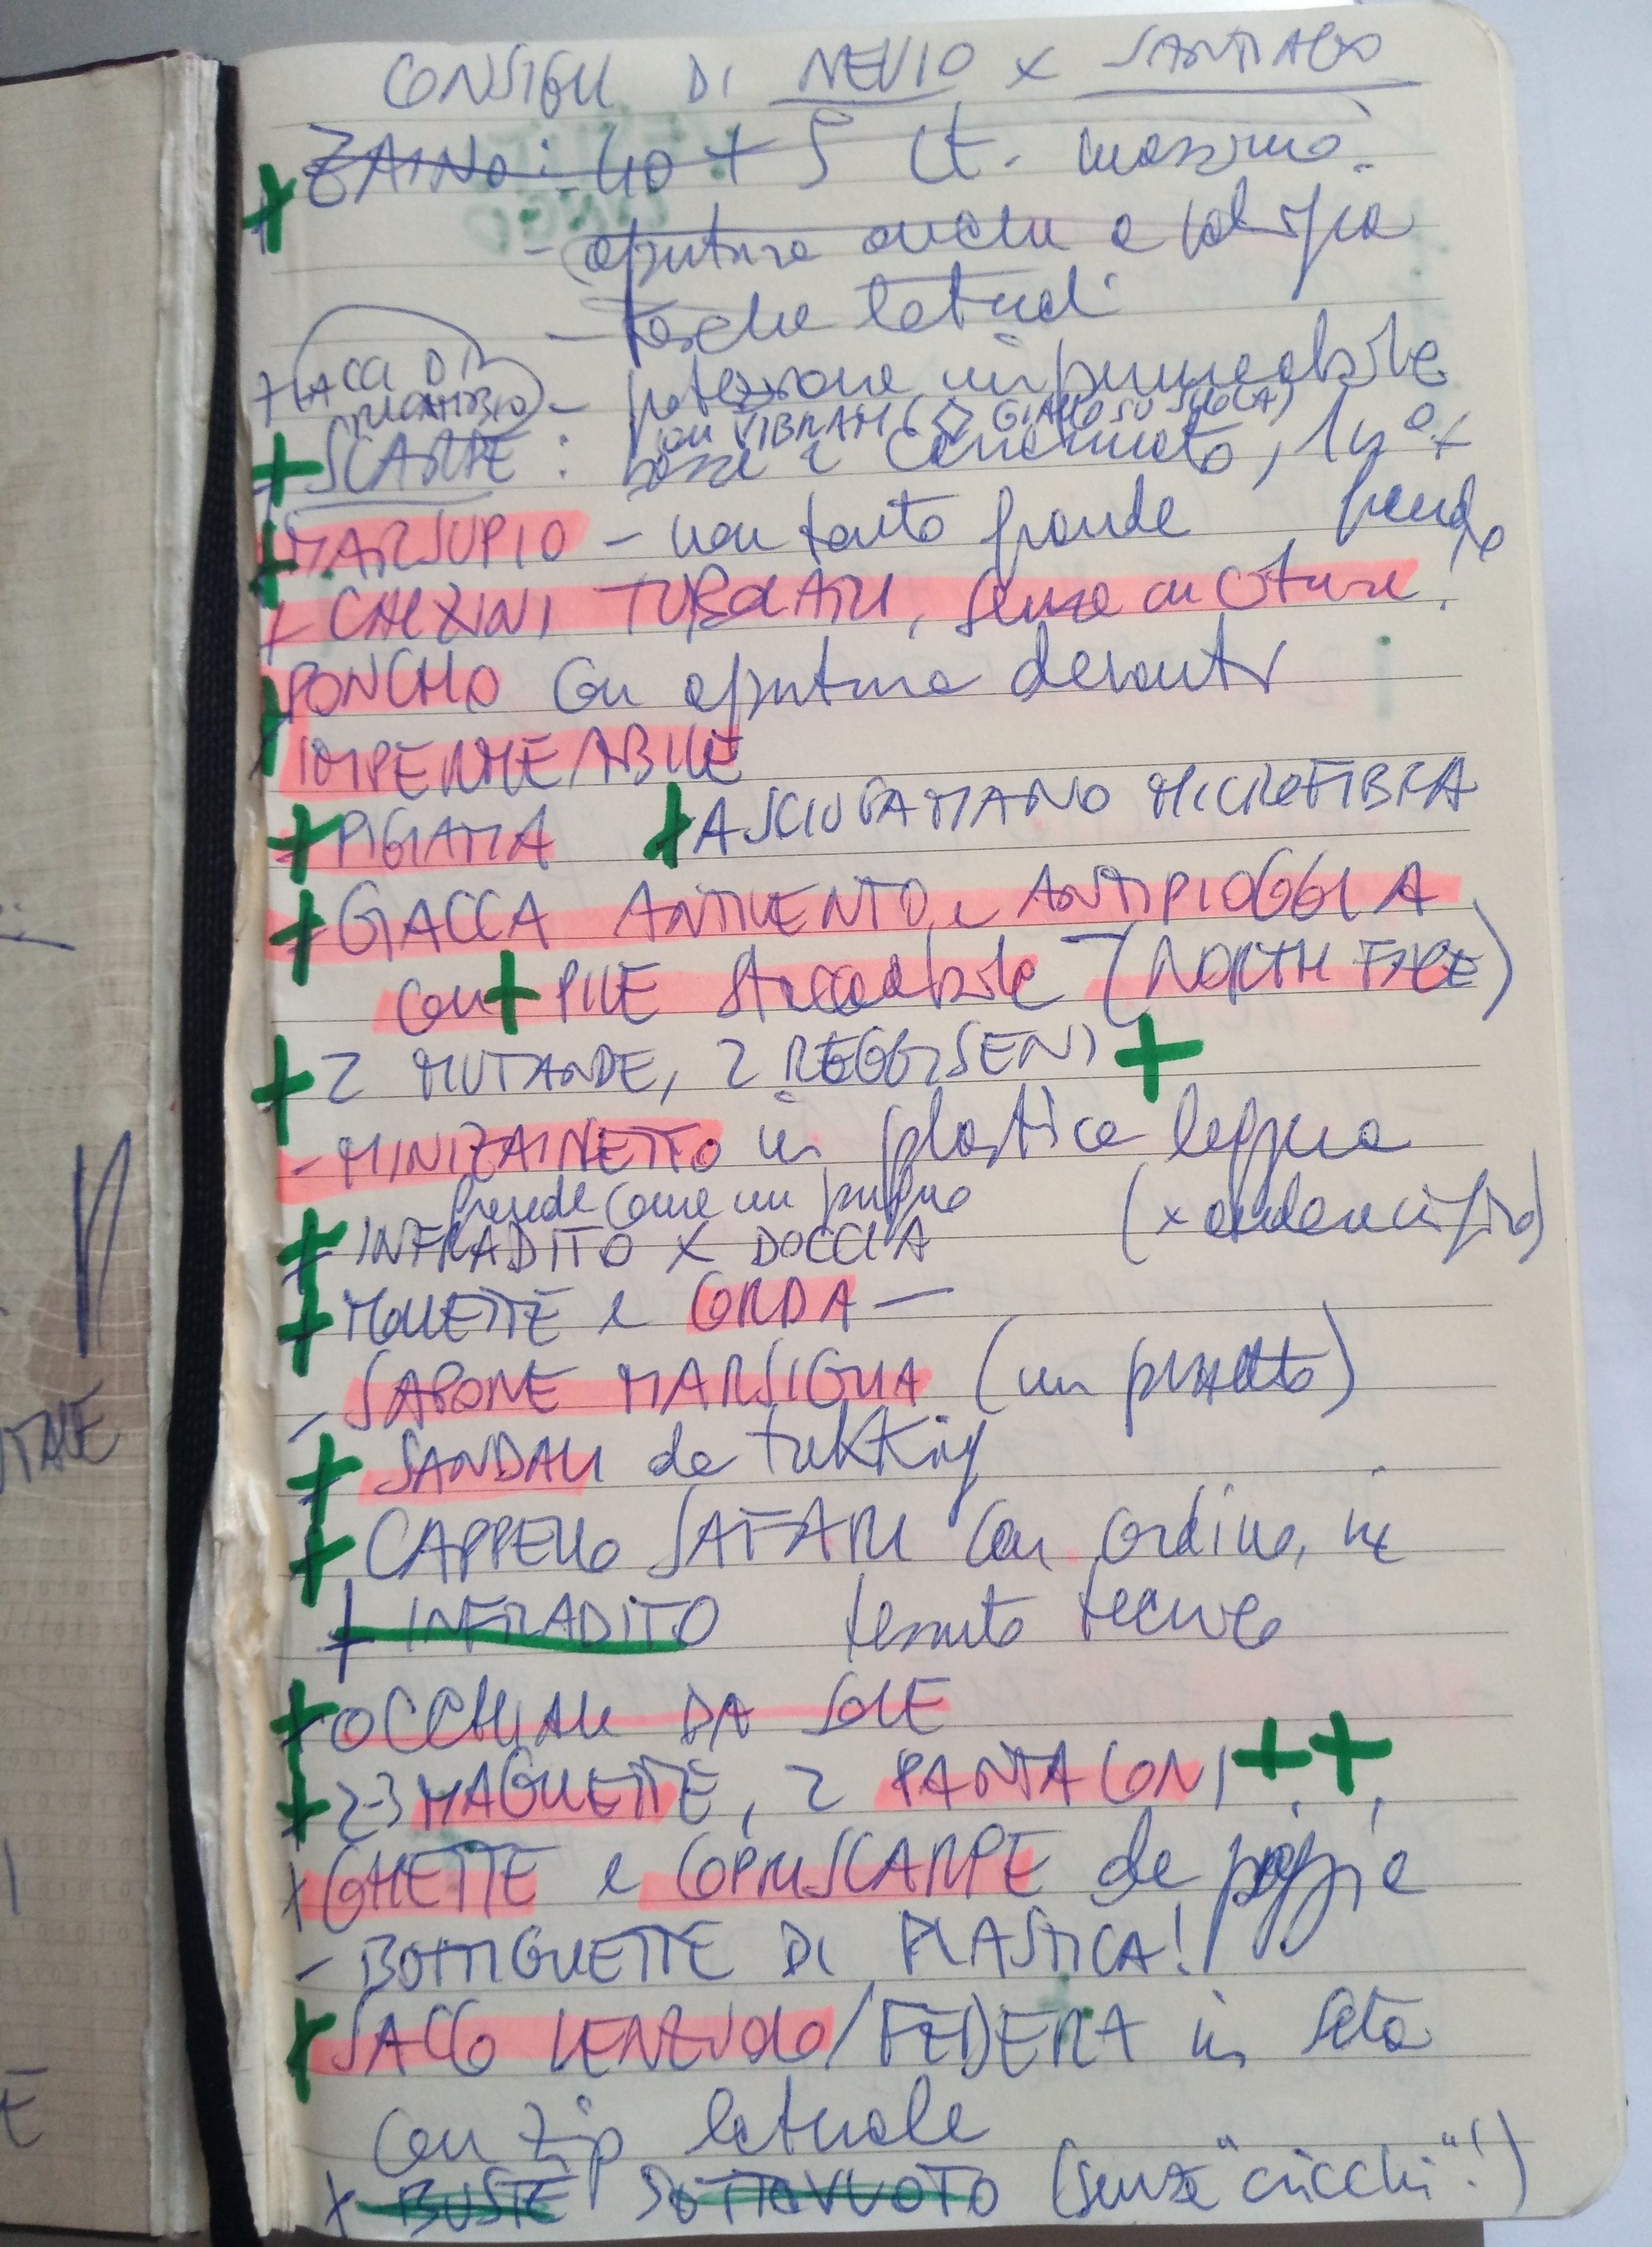 CONSIGLI DI NEVIO x SANTIAGO
+ ZAINO: 40 + 5 lt. massimo.
- apertura anche a valigia
- tasche laterali
+ LACCI DI RICAMBIO
- protezione impermeabile
con VIBRAM (<> GIALLO SU SUOLA)
+ SCARPE: basse e , 1 n° +
grande
+ MARSUPIO - non tanto grande
+ CALZINI TUBOLARI, senza cuciture!
+ PONCHO con apertura davanti
IMPERMEABILE
+ PIGIAMA + ASCIUGAMANO MICROFIBRA
+ GIACCA ANTIVENTO e ANTIPIOGGIA
con + PILE staccabile - (NORTH FACE)
+ 2 MUTANDE, 2 REGGISENI +
- MINIZAINETTO in plastica leggera
come un pugno (x andare in giro)
+ INFRADITO x DOCCIA
+ MOLLETTE e CORDA -
- SAPONE MARSIGLIA (un pezzetto)
+ SANDALI da trekking
+ CAPPELLO SAFARI con cordino, in
+ INFRADITO tessuto tecnico
+ OCCHIALI DA SOLE
+ 2-3 MAGLIETTE, 2 PANTALONI ++
+ GHETTE e COPRISCARPE da pioggia
- BOTTIGLIETTE DI PLASTICA!
+ SACCO LENZUOLO/FEDERA in seta
con zip laterale
+ BUSTE SOTTOVUOTO (senza "cricchi"!)